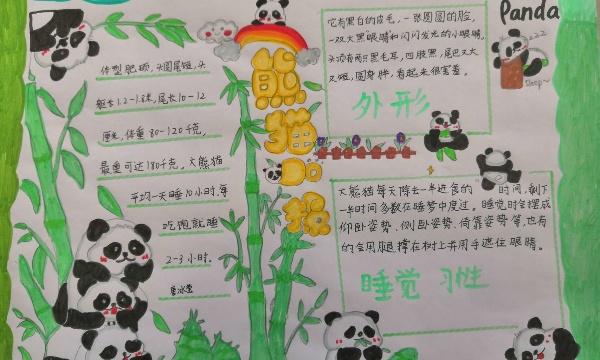 体型肥硕，头圆尾短，头
躯长1.2-1.8米，尾长10-12
厘米，体重80-120千克，
最重可达180千克，大熊猫
平均一天睡10小时，每
吃饱就睡
2-3小时。
熊猫日报
它有黑白的皮毛，一张圆圆的脸，
一双大黑眼睛和闪闪发光的小眼睛，
头顶有两只黑毛耳，四肢黑，尾巴又大
又短，圆身胖，看起来很富态。
外形
Panda
zzz
Sleep~
大熊猫每天除去一半进食的时间，剩下
一半时间多数在睡梦中度过。睡觉时会摆成
仰卧姿势、侧卧姿势、倚靠姿势等，也有
的会用腿撑在树上并用手遮住眼睛。
睡觉 习性